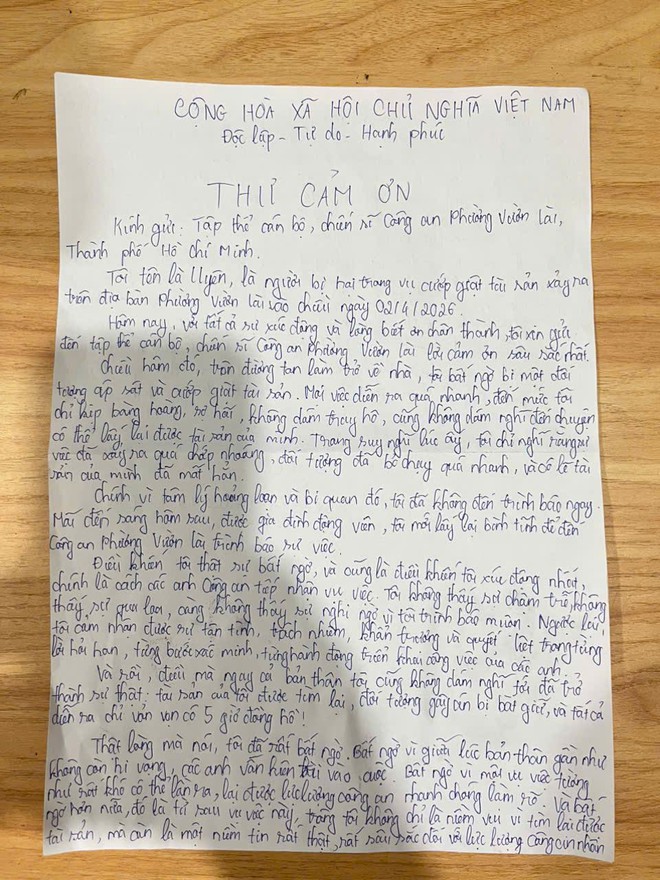 CỘNG HÒA XÃ HỘI CHỦ NGHĨA VIỆT NAM
Độc lập - Tự do - Hạnh phúc
THƯ CẢM ƠN
Kính gửi: Tập thể cán bộ, chiến sĩ Công an Phường Vườn Lài,
Thành phố Hồ Chí Minh.
Tôi tên là Uyên, là người bị hại trong vụ cướp giật tài sản xảy ra
trên địa bàn Phường Vườn Lài vào chiều ngày 02/4/2026.
Hôm nay, với tất cả sự xúc động và lòng biết ơn chân thành, tôi xin gửi
đến tập thể cán bộ, chiến sĩ Công an Phường Vườn Lài lời cảm ơn sâu sắc nhất.
Chiều hôm đó, trên đường tan làm trở về nhà, tôi bất ngờ bị một đối
tượng áp sát và cướp giật tài sản. Mọi việc diễn ra quá nhanh, đến mức tôi
chỉ kịp bàng hoàng, sợ hãi, không dám truy hô, cũng không dám nghĩ đến chuyện
có thể lấy lại được tài sản của mình. Trong suy nghĩ lúc ấy, tôi chỉ nghĩ rằng sự
việc đã xảy ra quá chớp nhoáng, đối tượng đã bỏ chạy quá nhanh, và có lẽ tài
sản của mình đã mất hẳn.
Chính vì tâm lý hoảng loạn và bi quan đó, tôi đã không đến trình báo ngay.
Mãi đến sáng hôm sau, được gia đình động viên, tôi mới lấy lại bình tĩnh để đến
Công an Phường Vườn Lài trình báo sự việc.
Điều khiến tôi thật sự bất ngờ, và cũng là điều khiến tôi xúc động nhất,
chính là cách các anh Công an tiếp nhận vụ việc. Tôi không thấy sự chậm trễ, không
thấy sự qua loa, càng không thấy sự nghi ngờ vì tôi trình báo muộn. Ngược lại,
tôi cảm nhận được sự tận tình, trách nhiệm, khẩn trương và quyết liệt trong từng
lời hỏi han, từng bước xác minh, từng hành động triển khai công việc của các anh.
Và rồi, điều mà ngay cả bản thân tôi cũng không dám nghĩ tới đã trở
thành sự thật: tài sản của tôi được tìm lại, đối tượng gây án bị bắt giữ, và tất cả
diễn ra chỉ vỏn vẹn có 5 giờ đồng hồ!
Thật lòng mà nói, tôi đã rất bất ngờ. Bất ngờ vì giữa lúc bản thân gần như
không còn hi vọng, các anh vẫn kiên trì vào cuộc. Bất ngờ vì một vụ việc tưởng
như rất khó có thể lần ra, lại được lực lượng công an nhanh chóng làm rõ. Và bất
ngờ hơn nữa, đó là từ sau vụ việc này, trong tôi không chỉ là niềm vui vì tìm lại được
tài sản, mà còn là một niềm tin rất thật, rất sâu sắc đối với lực lượng Công an nhân